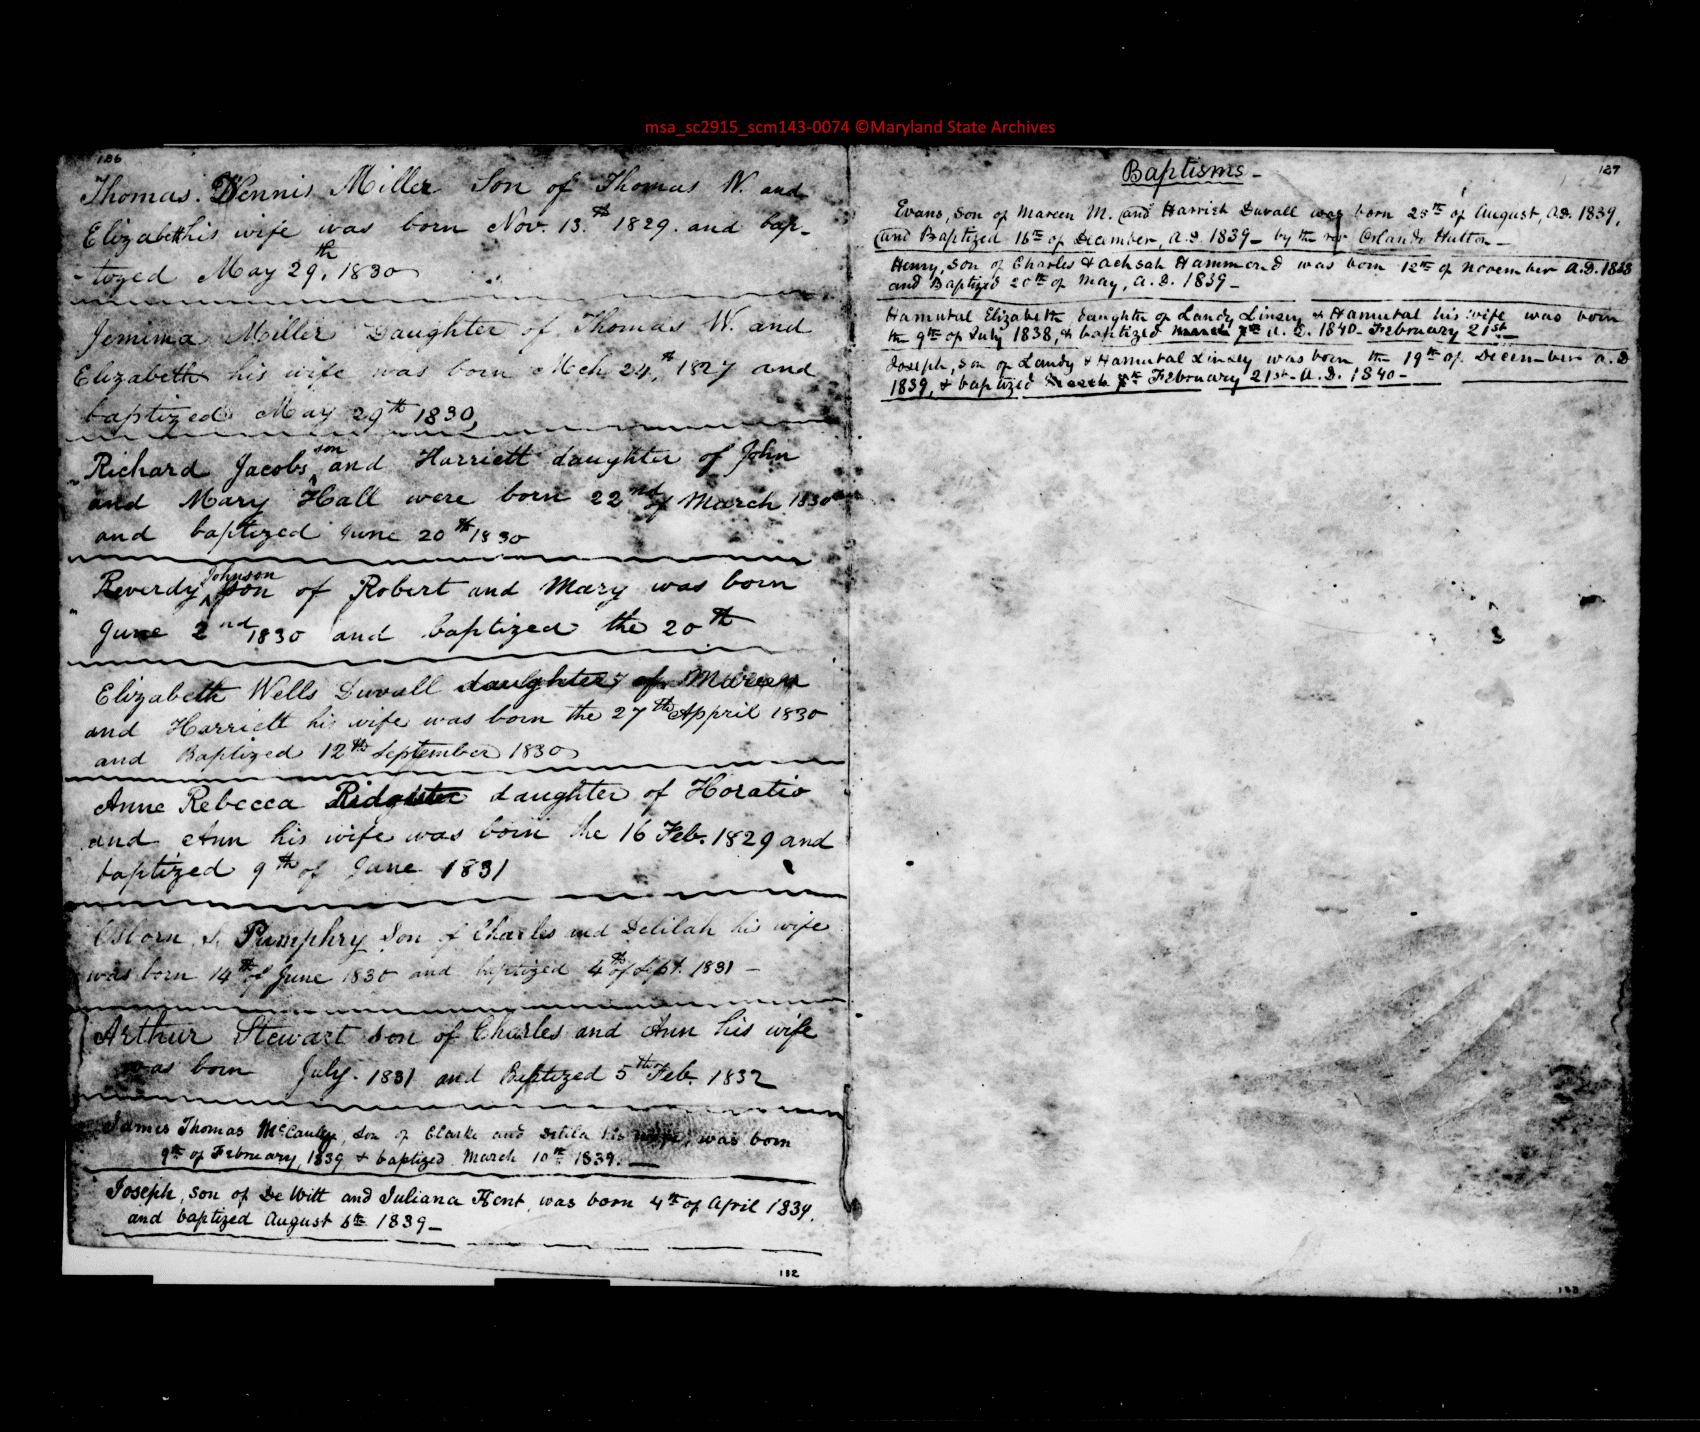 msa_sc2915_scm143-0074 ©Maryland State Archives
186
Thomas Dennis Miller Son of Thomas W. and
Elizabeth his wife was born Nov. 13.th 1829. and bap-
-tized May 29th, 1830
Jemima Miller Daughter of Thomas W. and
Elizabeth his wife was born Mch 24,th 1827 and
baptized May 29th 1830,
Richard Jacobs son and Harriett daughter of John
and Mary Hall were born 22nd of March 1830
and baptized June 20th 1830
Reverdy Johnson son of Robert and Mary was born
June 2nd 1830 and baptized the 20th
Elizabeth Wells Duvall daughter of Mareen
and Harriett his wife was born the 27th Appril 1830
and Baptized 12th September 1830
Anne Rebecca daughter of Horatio
and Ann his wife was born the 16 Feb. 1829 and
baptized 9th of June 1831
Osborn S. Pumphry Son of Charles and Delilah his wife
was born 14th of June 1830 and baptized 4th of Sept. 1831 -
Arthur Stewart son of Charles and Ann his wife
was born July. 1831 and Baptized 5th Feb. 1832
James Thomas McCauley, Son of Clarke and his wife, was born
9th of February, 1839 & baptized March 10th 1839. —
Joseph, son of DeWitt and Juliana Kent, was born 4th of April 1839.
and baptized August 6th 1839 -
132
Baptisms -
187
Evans, Son of Mareen M. and Harriet Duvall was born 25th of August, A.D. 1839,
and Baptized 16th of December, A.D. 1839 - by the rev Orlando Hutton -
Henry, son of Charles & Achsah Hammond was born 12th of November A.D. 1838
and Baptized 20th of May, A.D. 1839 -
Hamutal Elizabeth daughter of Landy Linsey & Hamutal his wife was born
the 9th of July 1838, & baptized March 7th A.D. 1840 - February 21st -
Joseph, son of Landy & Hamutal Linsey was born the 19th of December A.D
1839, & baptized March 7th February 21st - A.D. 1840 -
133